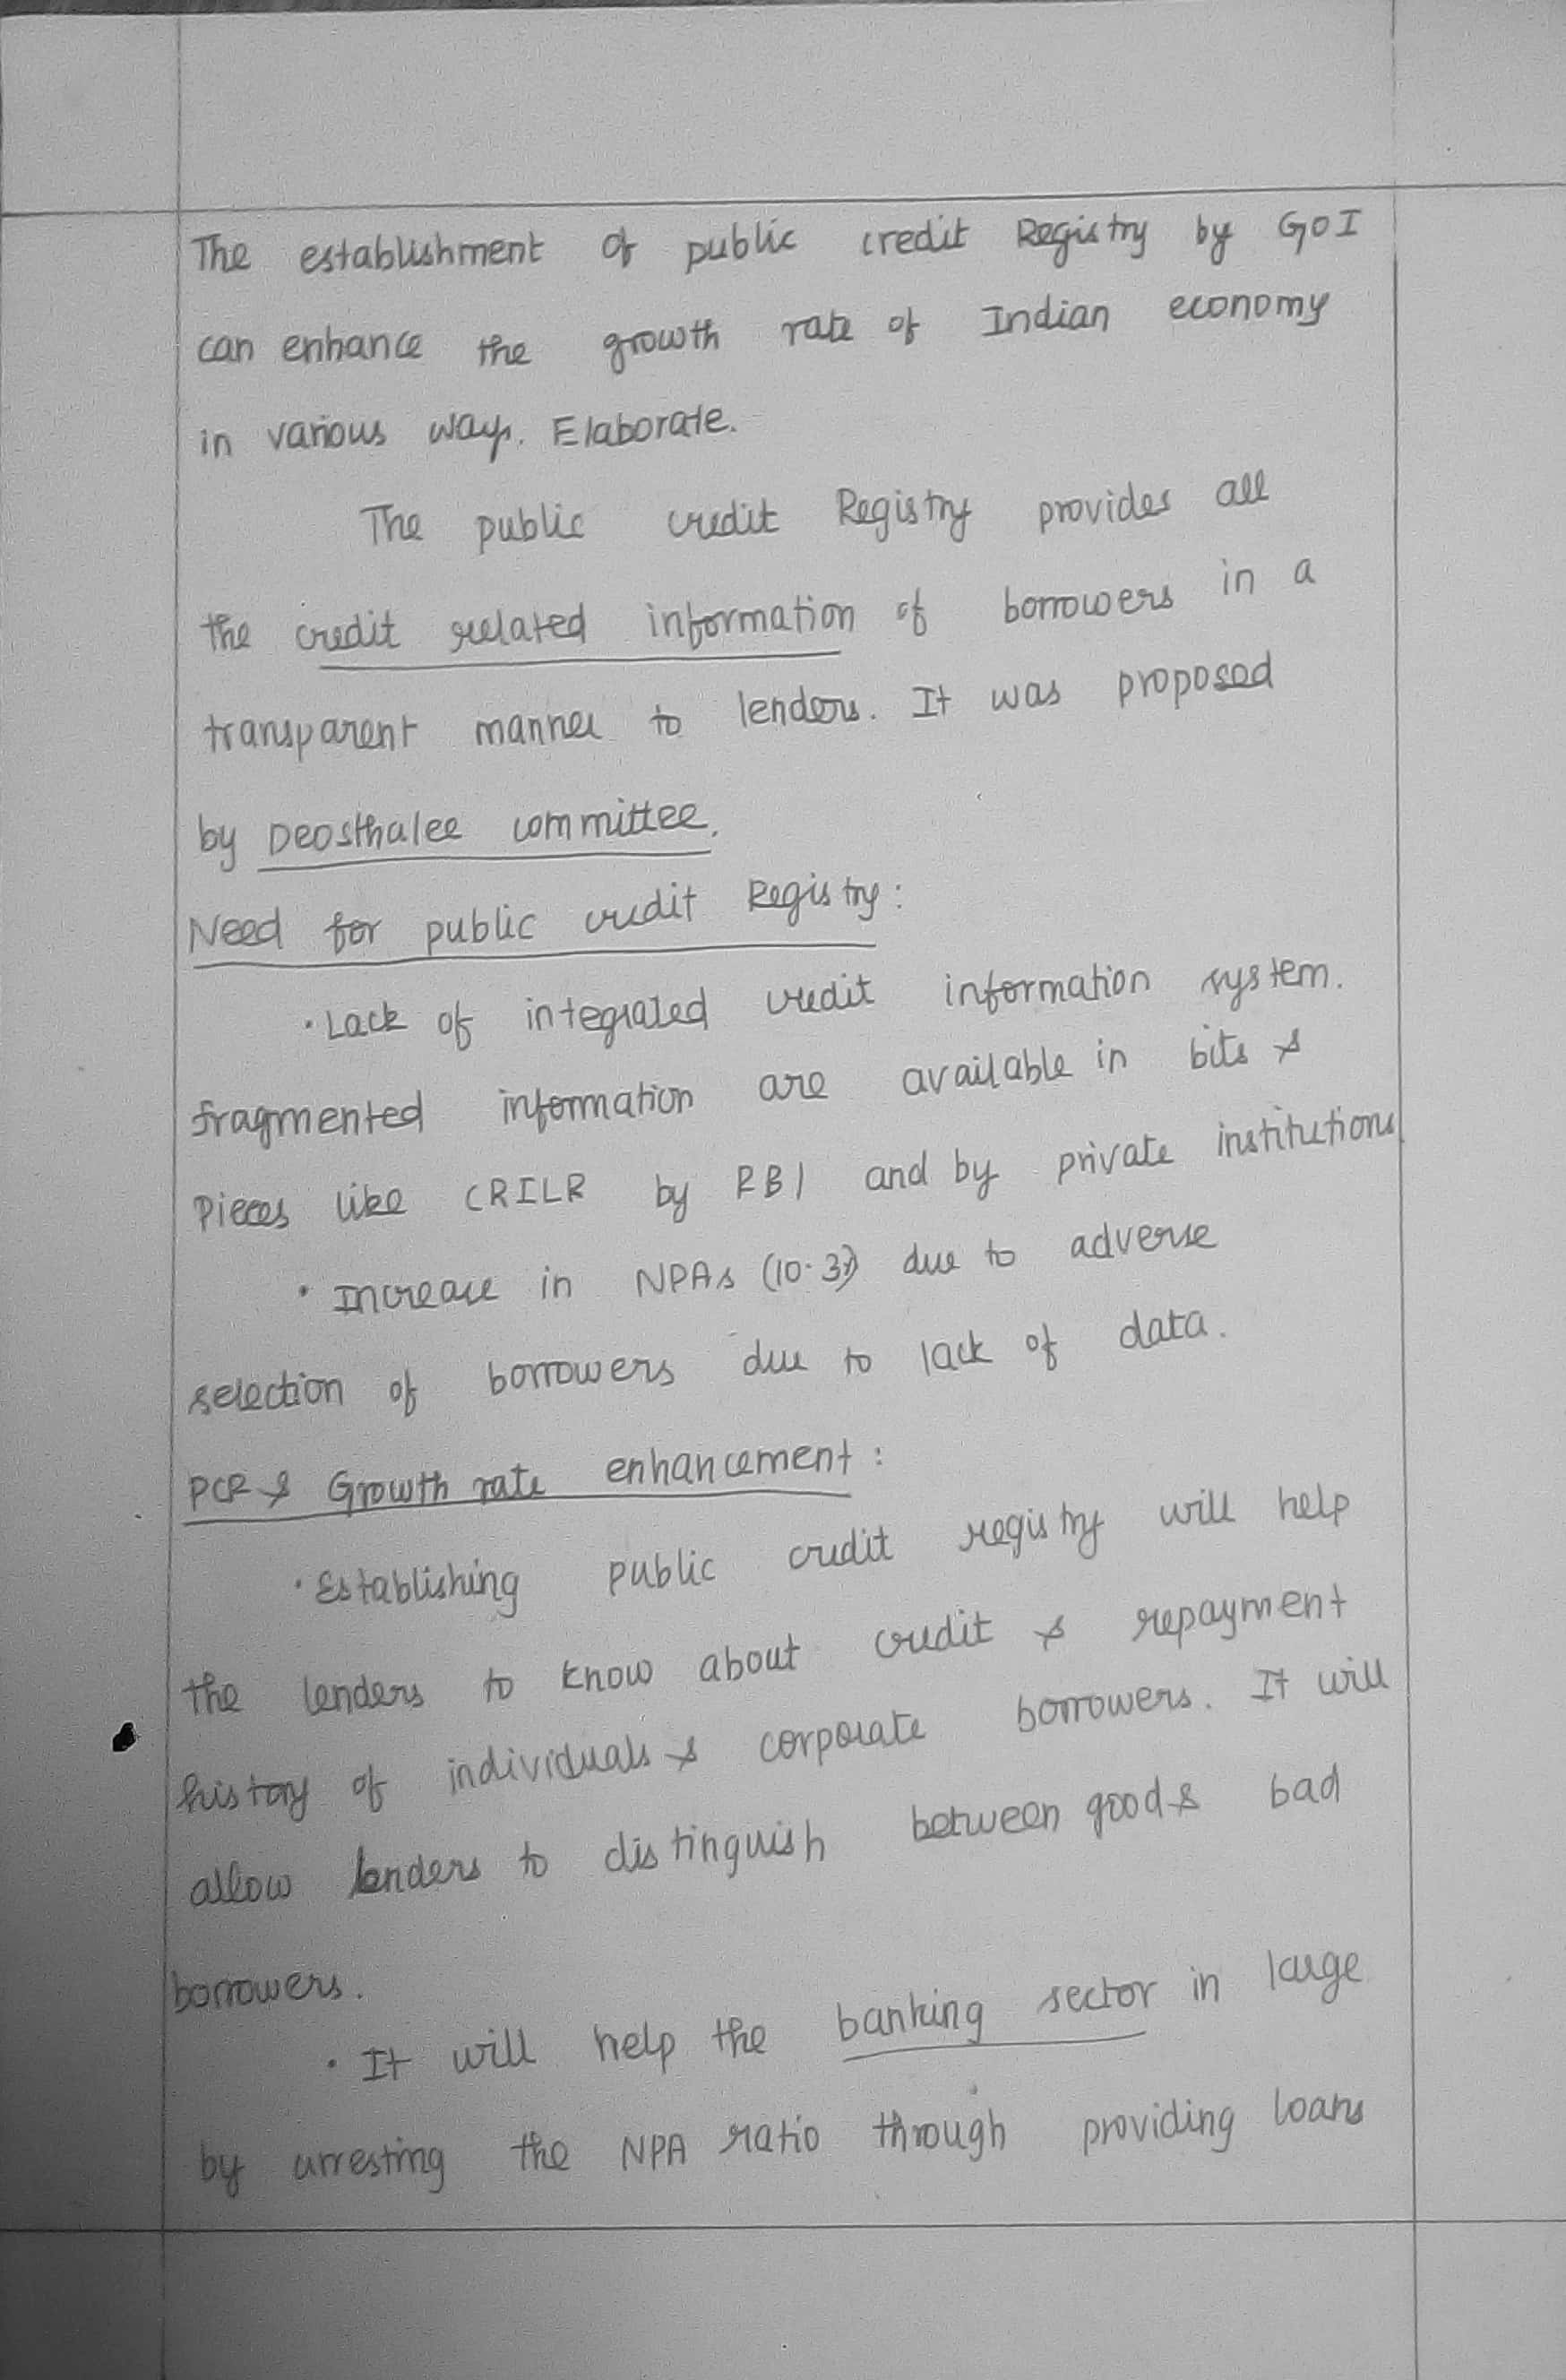 The establishment of public credit Registry by GOI
can enhance the growth rate of Indian economy
in various ways. Elaborate.
The public credit Registry provides all
the credit related information of borrowers in a
transparent manner to lenders. It was proposed
by Deosthalee committee.
Need for public credit Registry:
• Lack of integrated credit information system.
fragmented information are available in bits &
Pieces like CRILR by RBI and by private institutions
• Increase in NPAs (10.3%) due to adverse
selection of borrowers due to lack of data.
PCR & Growth rate enhancement:
• Establishing public credit registry will help
the lenders to know about credit & repayment
history of individuals & corporate borrowers. It will
allow lenders to distinguish between good & bad
borrowers.
• It will help the banking sector in large
by arresting the NPA ratio through providing loans